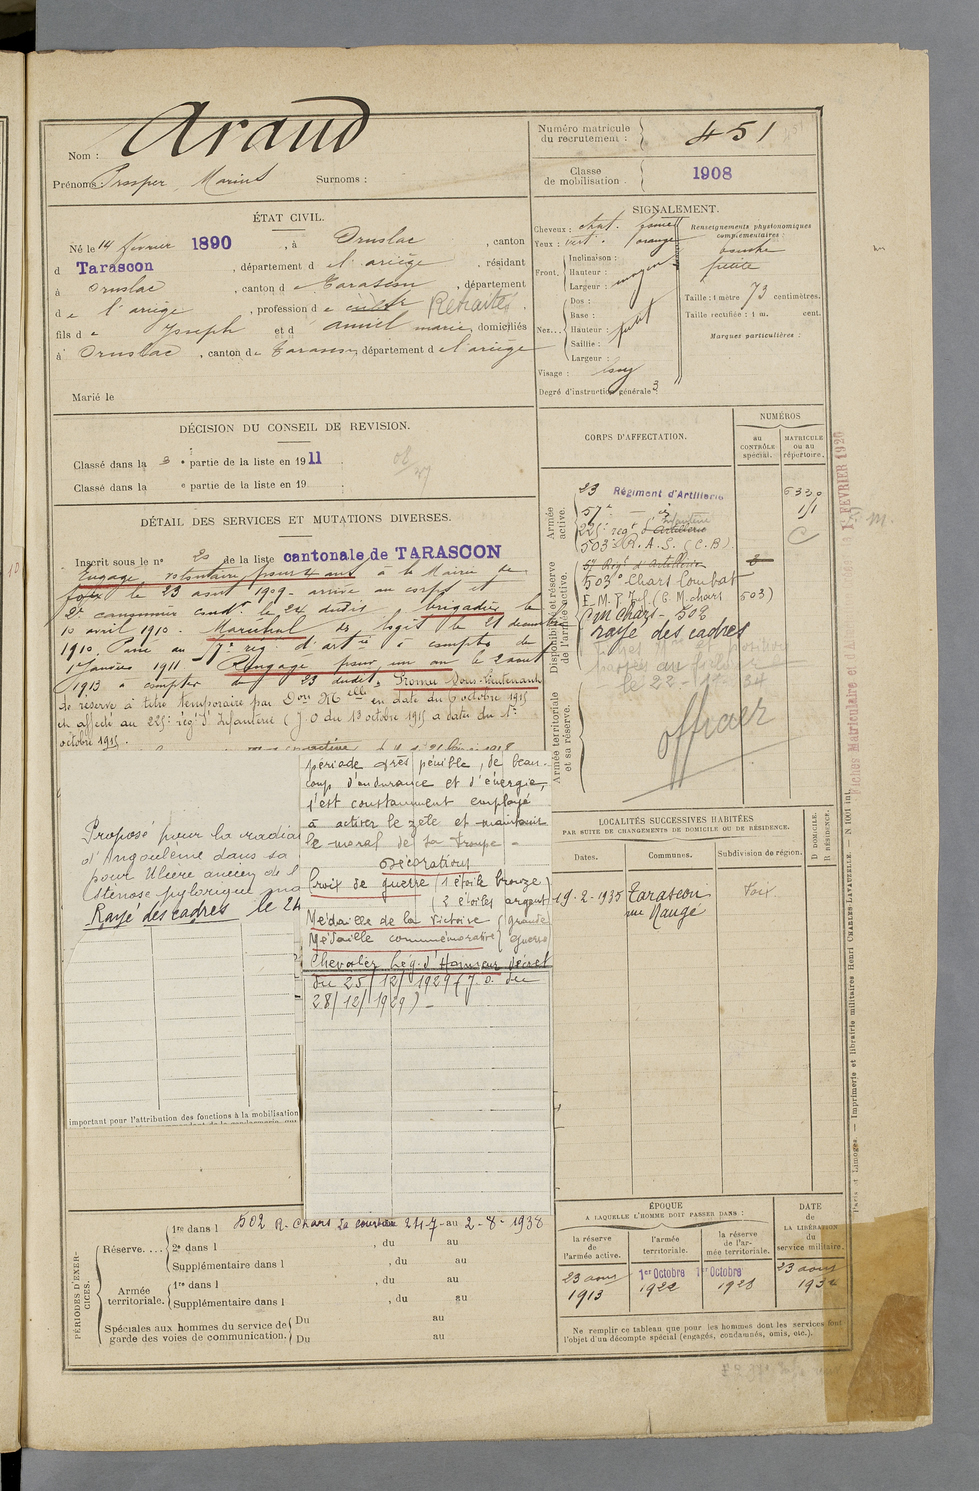 Nom : Araud
Prénoms : Prosper, Marius Surnoms :
Numéro matricule du recrutement : 451
Classe de mobilisation. 1908
ÉTAT CIVIL.
Né le 14 février 1890, à Ornolac, canton
d Tarascon, département d e l'ariège, résidant
à Ornolac, canton d e Tarascon, département
d e l'ariège, profession d e Retraité.
fils d e Joseph et d amiel marie, domiciliés
à Ornolac, canton d e Tarascon, département d e l'ariège
Marié le
SIGNALEMENT.
Cheveux : chat. foncé
Yeux : vert. orangé
Inclinaison :
Front. Hauteur : moyen
Largeur :
Dos :
Base :
Nez... Hauteur : petit
Saillie :
Largeur :
Visage : long
Degré d'instruction générale 3
Renseignements physionomiques complémentaires :
bouche
petite
Taille : 1 mètre 73 centimètres.
Taille rectifiée : 1 m. cent.
Marques particulières :
DÉCISION DU CONSEIL DE REVISION.
Classé dans la 3e partie de la liste en 1911.
Classé dans la e partie de la liste en 19 .
DÉTAIL DES SERVICES ET MUTATIONS DIVERSES.
Inscrit sous le n° 20 de la liste cantonale de TARASCON
Engagé volontaire pour 4 ans à la Mairie de
Foix le 23 août 1909 - arrivé au corps et
2e canonnier condr le 24 dudit, brigadier le
10 avril 1910. Maréchal des logis le 21 décembre
1910. Passé au 57e rég. d'artie à compter du
1er Janvier 1911 - Rengagé pour un an le 2 août
1913 à compter du 23 dudit. Promu Sous-Lieutenant
de réserve à titre temporaire par Don Mlle en date du 6 octobre 1915
et affecté au 225e régt d'Infanterie (J.O du 13 octobre 1915 a dater du 1er
octobre 1915.
période très pénible, de beau-
coup d'endurance et d'énergie,
s'est constamment employé
à activer le zèle et maintenir
le moral de sa troupe -
Décorations
Croix de guerre (1 étoile bronze)
(2 étoiles argent
Médaille de la Victoire (grande
Médaille commémorative guerre
Chevalier Lég. d'Honneur Décret
du 25/12/1929 (J.O. du
28/12/1929) -
Proposé pour la radia
d'Angoulême dans sa
pour Ulcère ancien de l
Sténose pylorique
Rayé des cadres le 24
important pour l'attribution des fonctions à la mobilisation
CORPS D'AFFECTATION.
NUMÉROS
au CONTRÔLE spécial.
MATRICULE ou au répertoire.
Armée active.
23 Régiment d'Artillerie 6330
57e 1/1
225e régt d'Infanterie Artillerie
503e R.A.S. (C.B)
Disponibilité et réserve de l'armée active.
57 Régt d'Artillerie
503e Chars Combat
(C.M. chars 503)
C M Chars - 503
rayé des cadres
le 22-
Armée territoriale et sa réserve.
offraer
Fiches Matriculaire et d'A
FEVRIER 1926
LOCALITÉS SUCCESSIVES HABITÉES
PAR SUITE DE CHANGEMENTS DE DOMICILE OU DE RÉSIDENCE.
Dates. Communes. Subdivision de région. D DOMICILE. R RÉSIDENCE.
19-2-1935 Tarascon Foix
rue Naugé
PÉRIODES D'EXERCICES.
Réserve.... 1re dans l 502 R. Chars La Courtine 24-7- au 2-8-1938
2e dans l , du au
Supplémentaire dans l , du au
Armée territoriale. 1re dans l , du au
Supplémentaire dans l , du au
Spéciales aux hommes du service de garde des voies de communication. Du au
Du au
ÉPOQUE
A LAQUELLE L'HOMME DOIT PASSER DANS :
la réserve de l'armée active.
l'armée territoriale.
la réserve de l'armée territoriale.
DATE de LA LIBÉRATION DU service militaire.
23 aout 1913
1er Octobre 1922
1er Octobre 1928
23 aout 1934
Ne remplir ce tableau que pour les hommes dont les services font
l'objet d'un décompte spécial (engagés, condamnés, omis, etc.).
Paris et Limoges. — Imprimerie et librairie militaires Henri CHARLES-LAVAUZELLE. — N 1001 int.